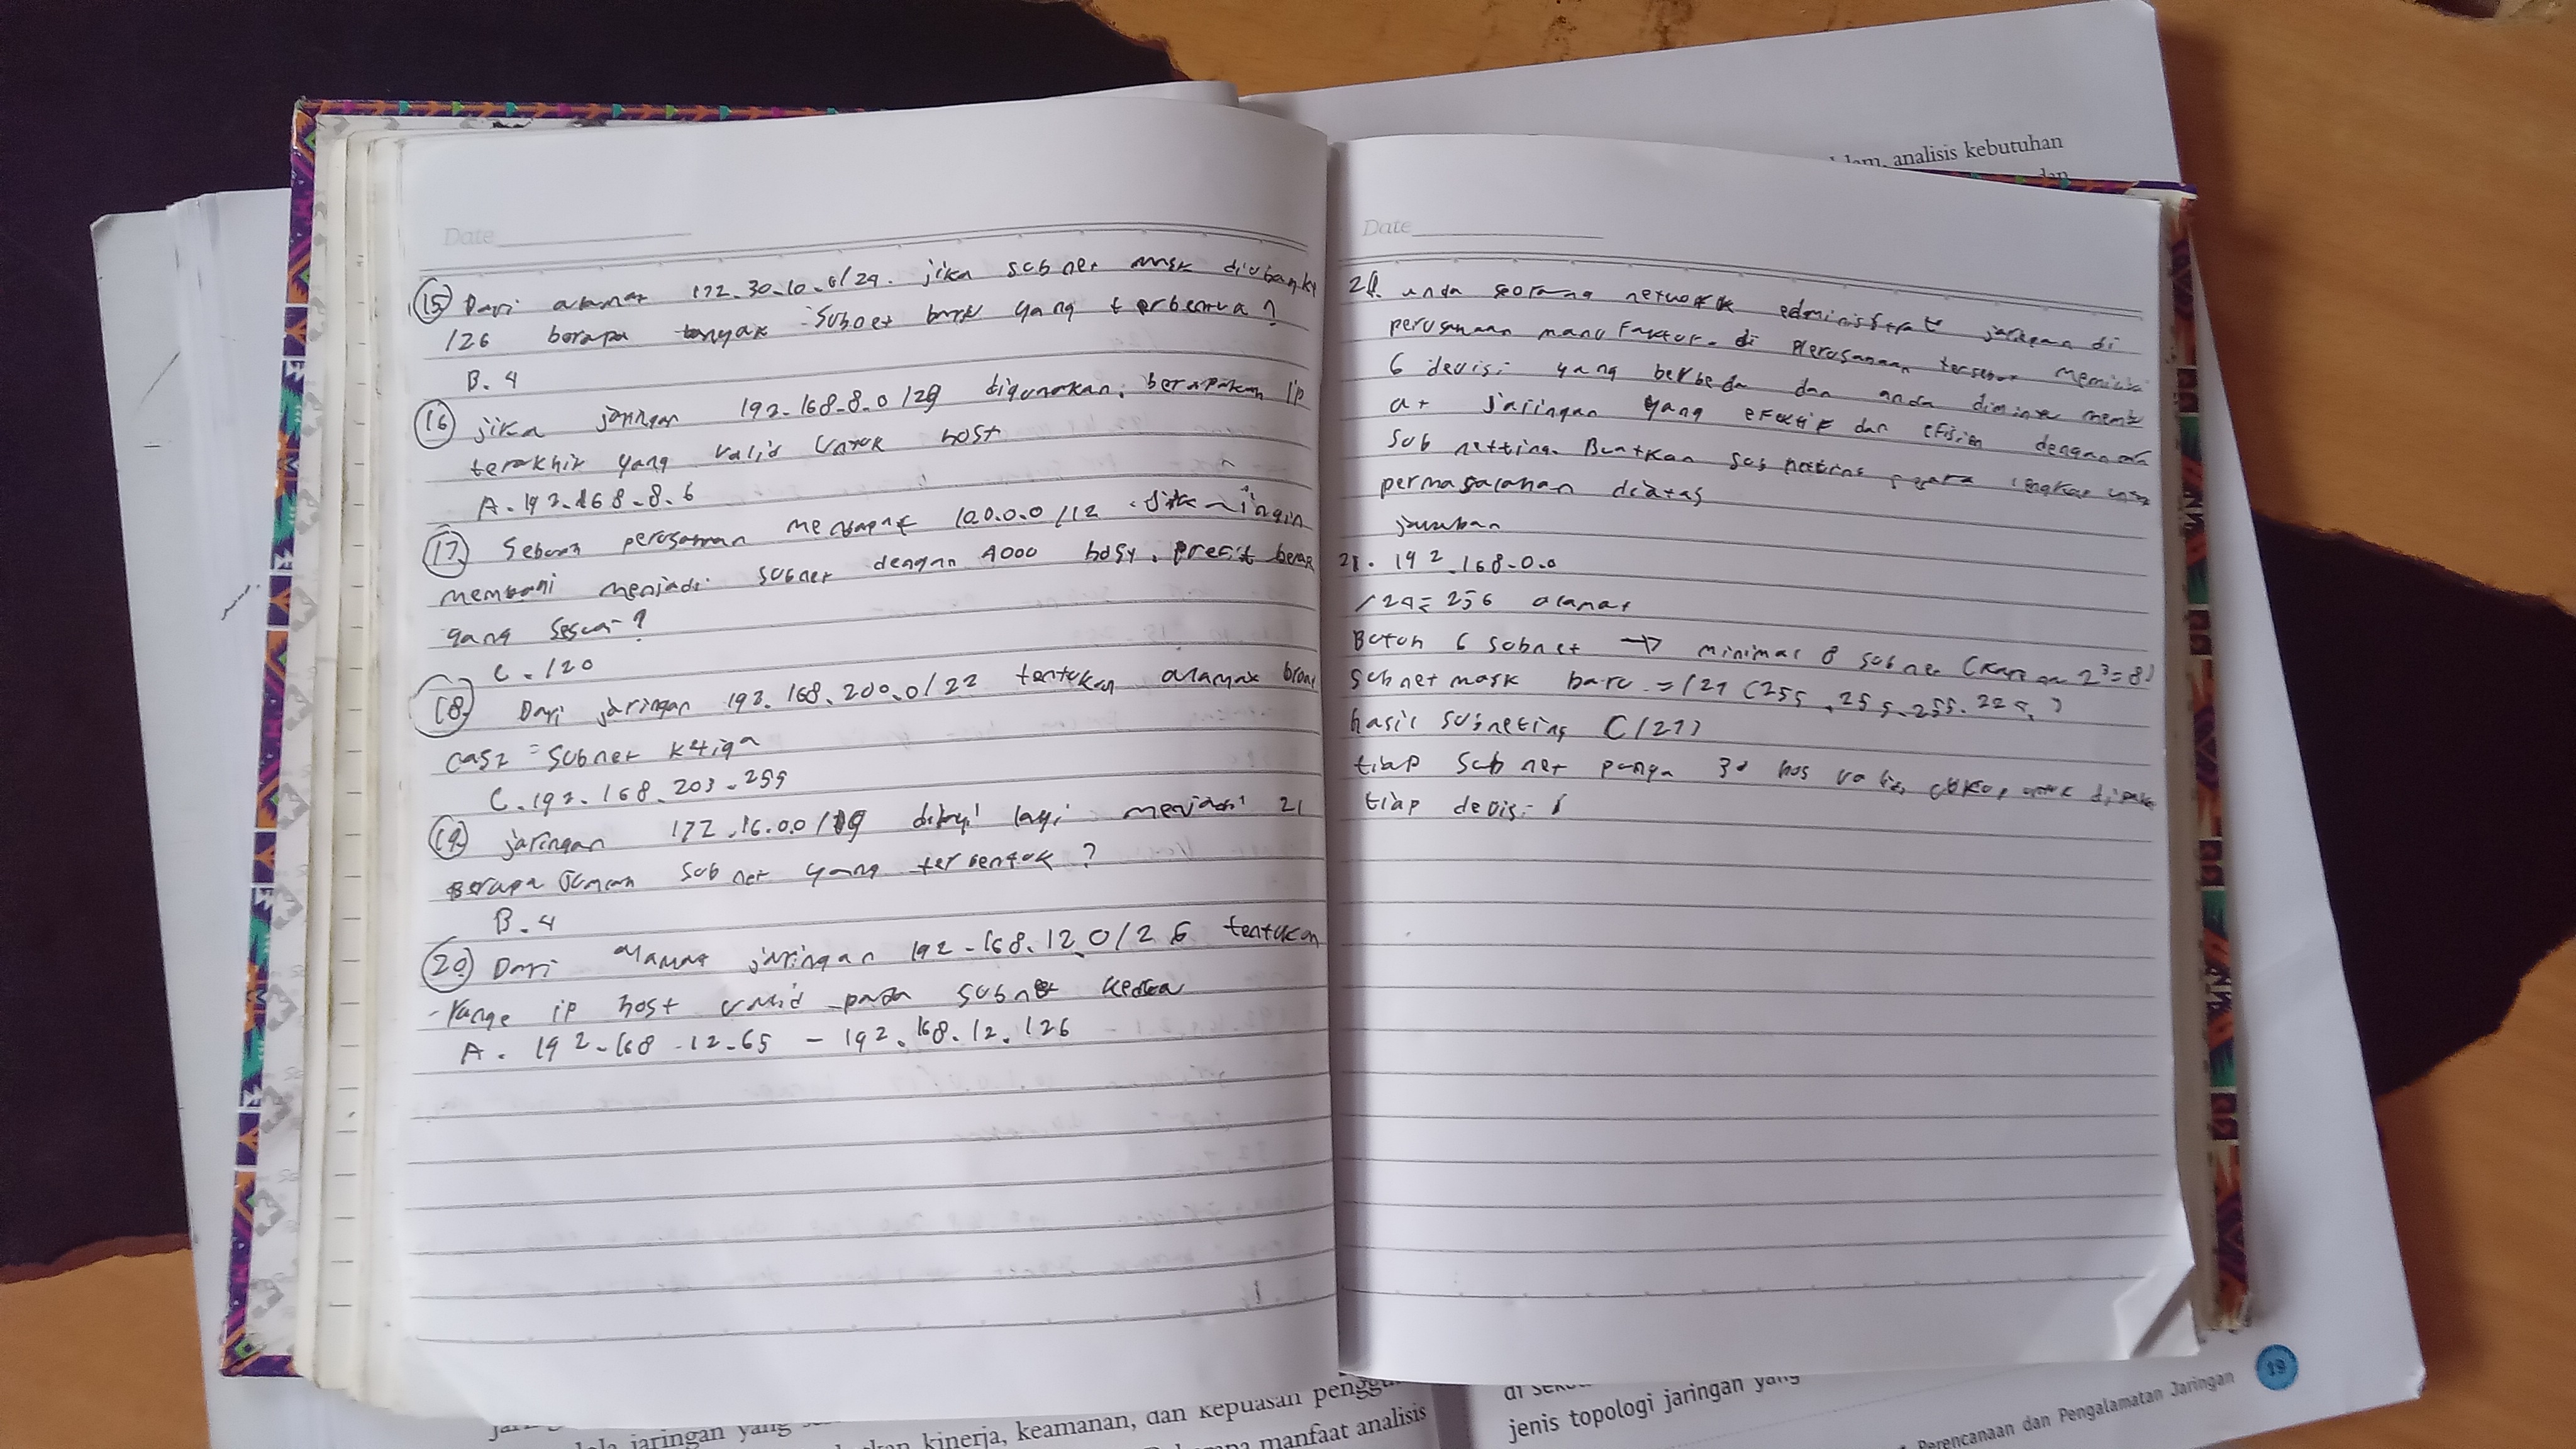 Date
(15) Dari alamat 172.30.10.0/24. jika subnet mask diubah ke
/26 berapa banyak subnet baru yang terbentuk?
B. 4
(16) jika jaringan 192.168.8.0/29 digunakan, berapakah IP
terakhir yang valid untuk host
A. 192.168.8.6
(17) Sebuah perusahaan mendapat 10.0.0.0/12. Jika ingin
membagi menjadi subnet dengan 4000 host, prefix berapa
yang sesuai?
C. /20
(18) Dari jaringan 192.168.200.0/22 tentukan alamat broad
cast = subnet ketiga
C. 192.168.203.255
(19) jaringan 172.16.0.0/19 dibagi lagi menjadi 21
Berapa Jumlah subnet yang terbentuk?
B. 4
(20) Dari alamat jaringan 192.168.12.0/26 tentukan
range ip host valid pada subnet kedua
A. 192.168.12.65 - 192.168.12.126
Date
21. anda seorang network jaringan di
perusahaan manufaktur. di perusahaan tersebut memiliki
6 devisi yang berbeda dan anda diminta memb
at jaringan yang efektif dan efisien dengan
sub netting. Buatkan sub netting lengkap
permasalahan diatas
jawaban
21. 192.168.0.0
/24 = 256 alamat
Butuh 6 subnet → minimal 8 subnet (karena 2³=8)
Subnet mask baru = /27 (255.255.255.225.)
hasil subneting (/27)
tiap subnet punya 30 hos valid, cukup untuk
tiap devisi
lam, analisis kebutuhan
dan
jenis topologi jaringan yang
kinerja, keamanan, dan kepuasan penggu
manfaat analisis
Perencanaan dan Pengalamatan Jaringan
19